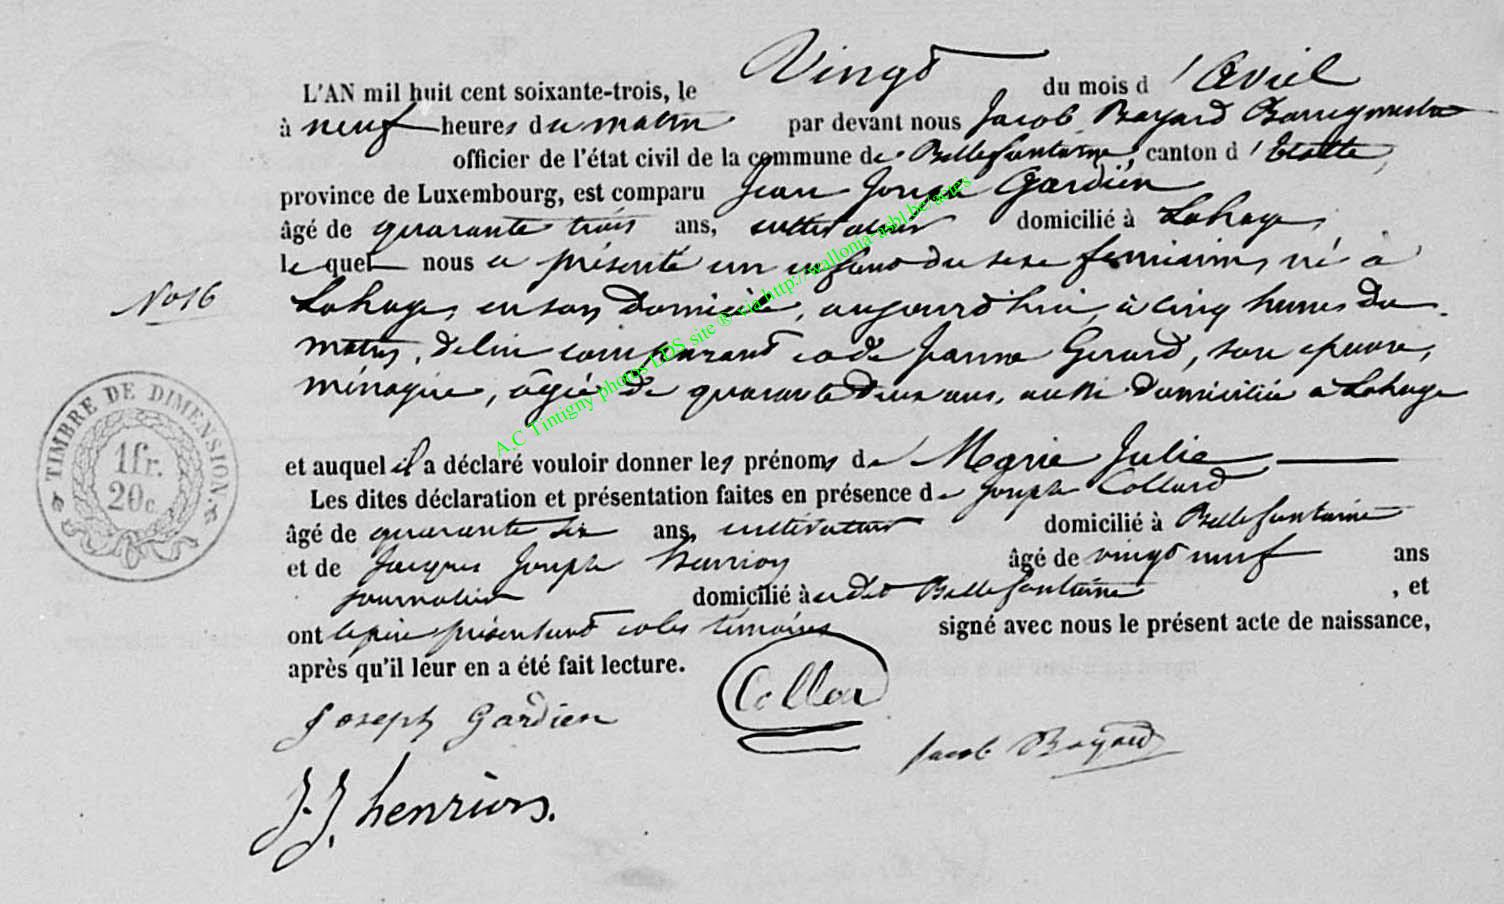 L'AN mil huit cent soixante-trois, le Vingt du mois d'Avril
à neuf heures du matin par devant nous Jacob Bayard Bourgmestre
officier de l'état civil de la commune de Bellefontaine, canton d'Etalle,
province de Luxembourg, est comparu Jean Joseph Gardien
âgé de quarante trois ans, cultivateur domicilié à Lahage,
lequel nous a présenté un enfant du sexe feminin, né à
No 16
Lahage, en son Domicile, aujourd'hui, à cinq heures du
matin, de lui comparant et de Jeanne Gerard, son epouse,
ménagère, âgée de quarante deux ans, aussi domiciliée a Lahage
et auquel il a déclaré vouloir donner les prénoms de Marie Julie
Les dites déclaration et présentation faites en présence de Joseph Collard
âgé de quarante six ans, cultivateur domicilié à Bellefontaine
et de Jacques Joseph Henrion âgé de vingt neuf ans
journalier domicilié à Bellefontaine, et
ont le père présentant et les témoins signé avec nous le présent acte de naissance,
après qu'il leur en a été fait lecture.
Joseph Gardien
Jacob Bayard
J.J. henrion.
TIMBRE DE DIMENSION
1 fr.
20 c.
A.C Tintigny photos LDS site ® via http://wallonia-asbl.be/actes